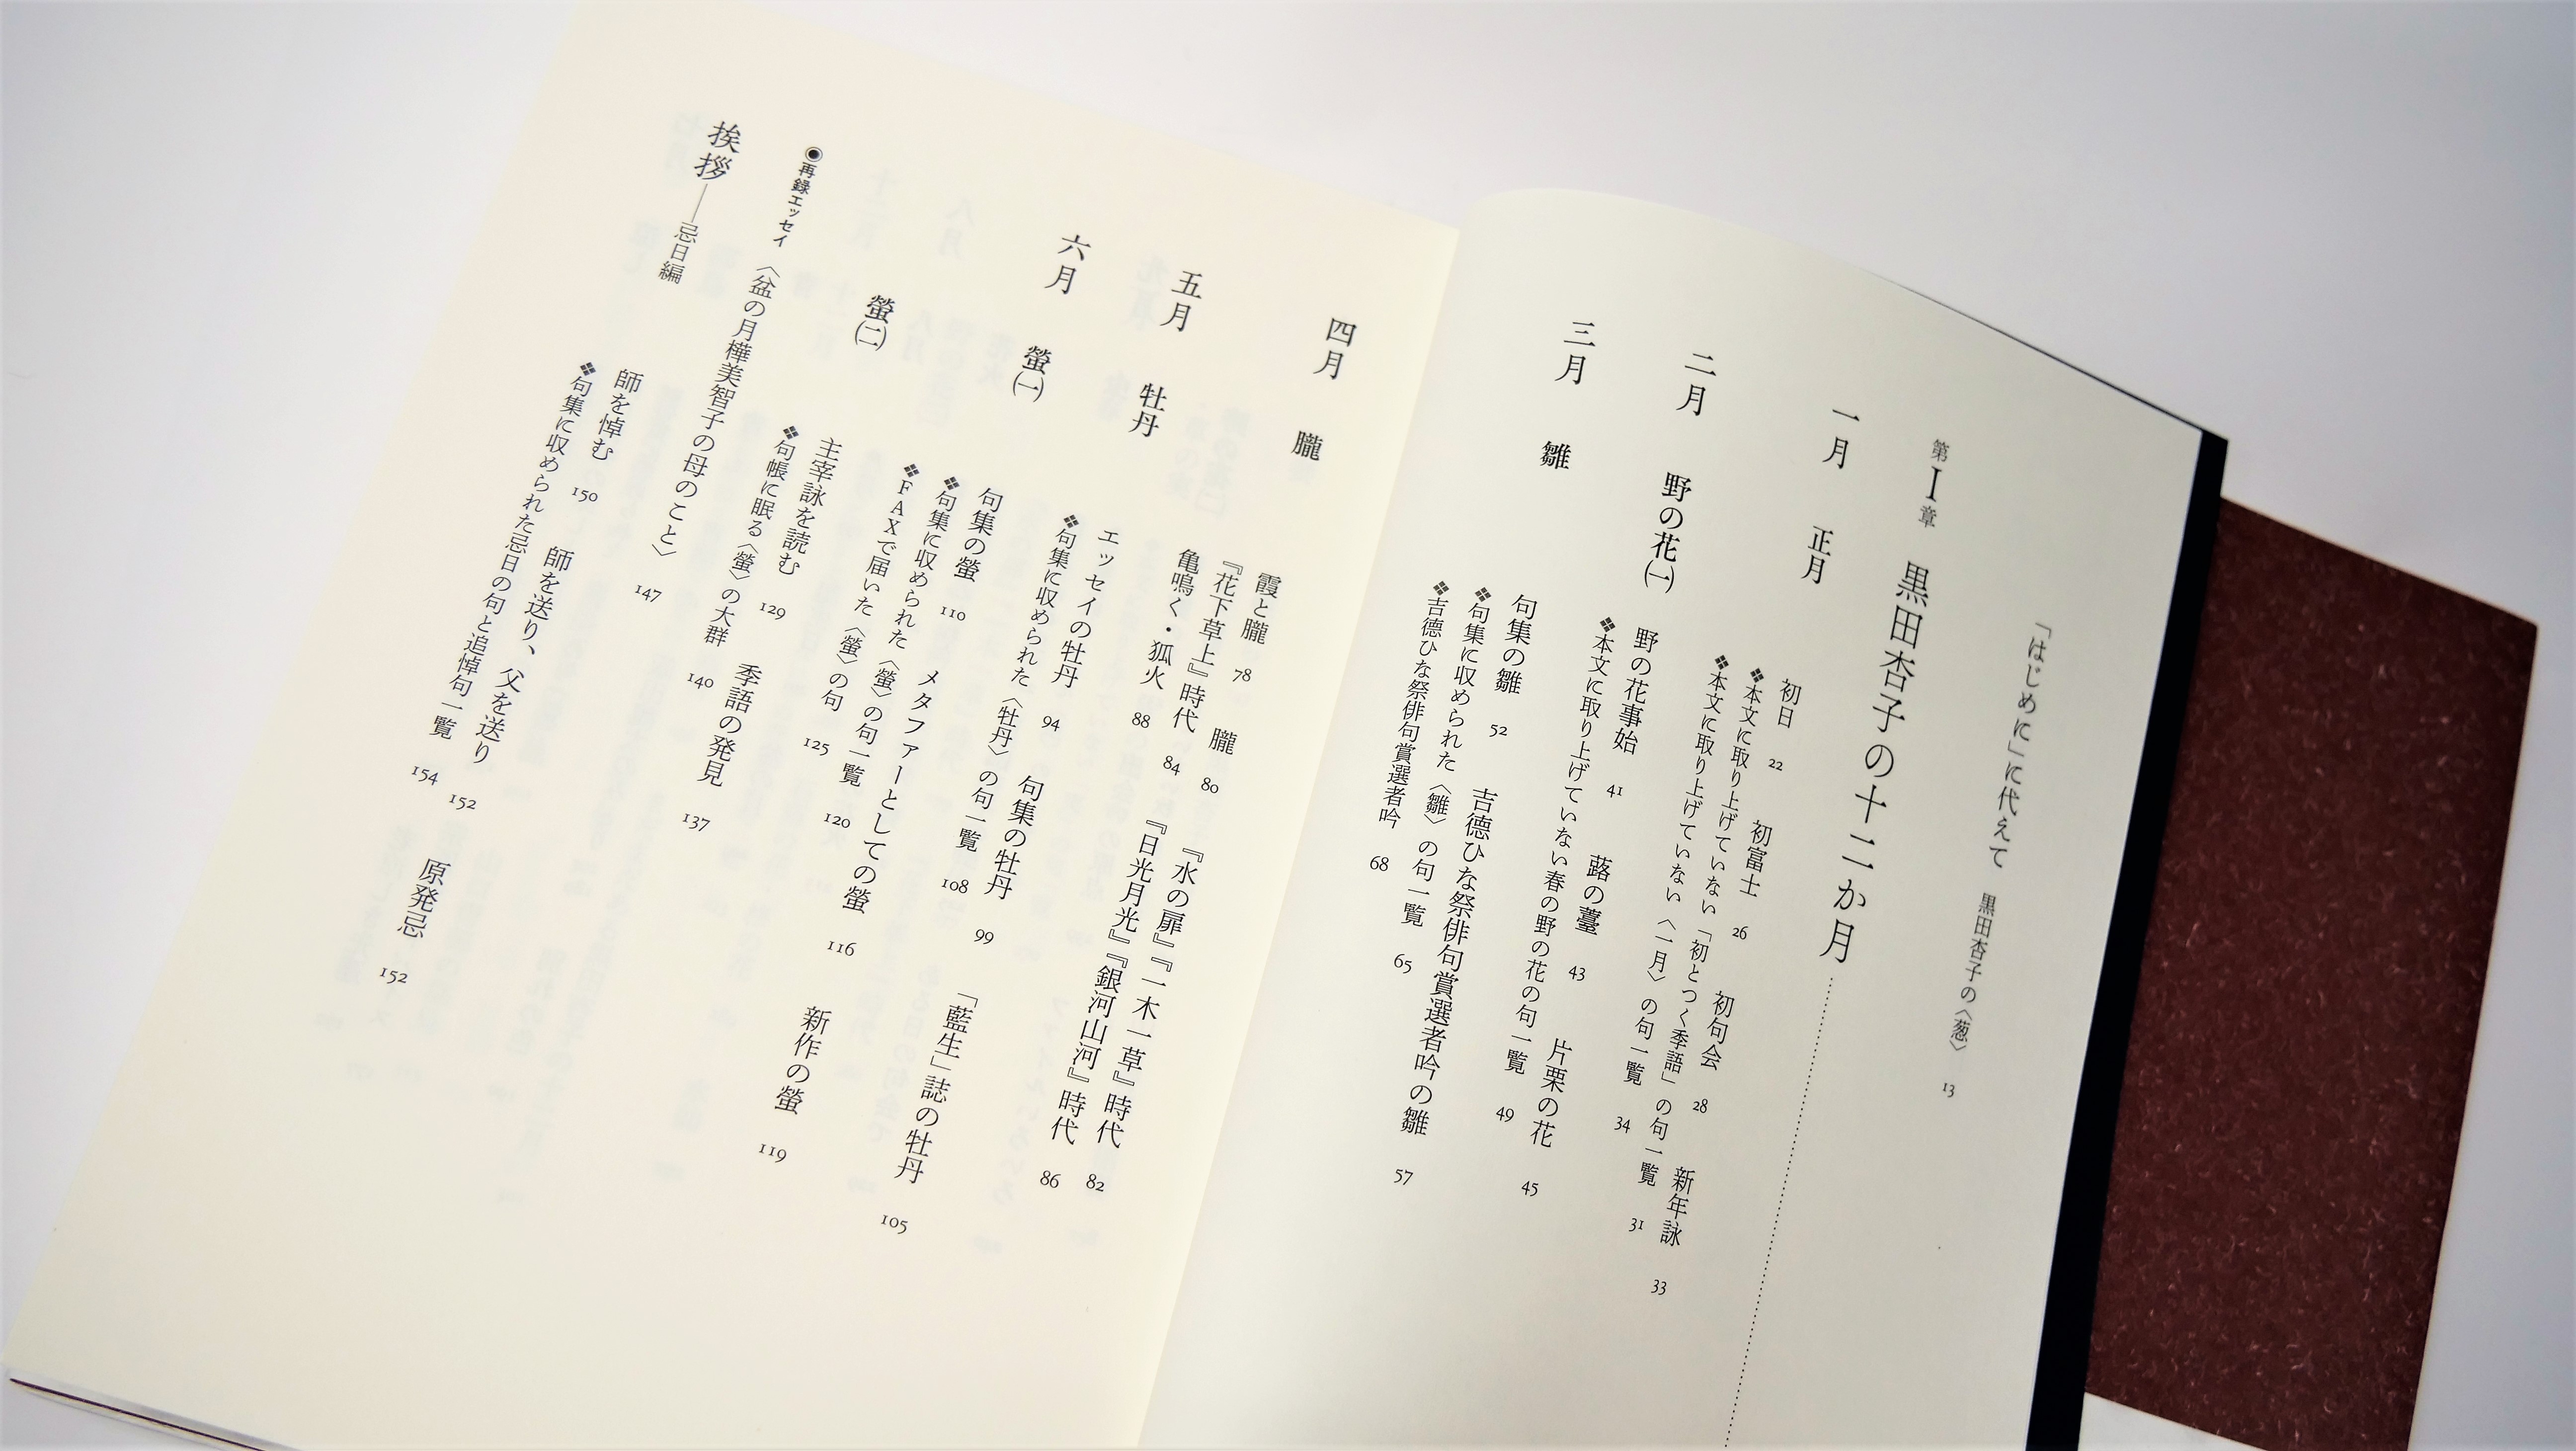 「はじめに」に代えて　黒田杏子の〈葱〉　13
第Ⅰ章　黒田杏子の十二か月
一月　正月
初日　22　初富士　26　初句会　28　新年詠　33
❖本文に取り上げていない「初とつく季語」の句一覧　31
❖本文に取り上げていない〈一月〉の句一覧　34
二月　野の花(一)
野の花事始　41　蕗の薹　43　片栗の花　45
❖本文に取り上げていない春の野の花の句一覧　49
三月　雛
句集の雛　52　吉德ひな祭俳句賞選者吟の雛　57
❖句集に収められた〈雛〉の句一覧　65
❖吉德ひな祭俳句賞選者吟　68
四月　朧
霞と朧　78　朧　80　『水の扉』『一木一草』時代　82
『花下草上』時代　84　『日光月光』『銀河山河』時代　86
亀鳴く・狐火　88
五月　牡丹
エッセイの牡丹　94　句集の牡丹　99　「藍生」誌の牡丹　105
❖句集に収められた〈牡丹〉の句一覧　108
六月　螢(一)
句集の螢　110　メタファーとしての螢　116　新作の螢　119
❖句集に収められた〈螢〉の句一覧　120
❖FAXで届いた〈螢〉の句　125
螢(二)
主宰詠を読む　129　季語の発見　137
❖句帳に眠る〈螢〉の大群　140
◉再録エッセイ　〈盆の月樺美智子の母のこと〉　147
挨拶――忌日編
師を悼む　150　師を送り、父を送り　152　原発忌　152
❖句集に収められた忌日の句と追悼句一覧　154